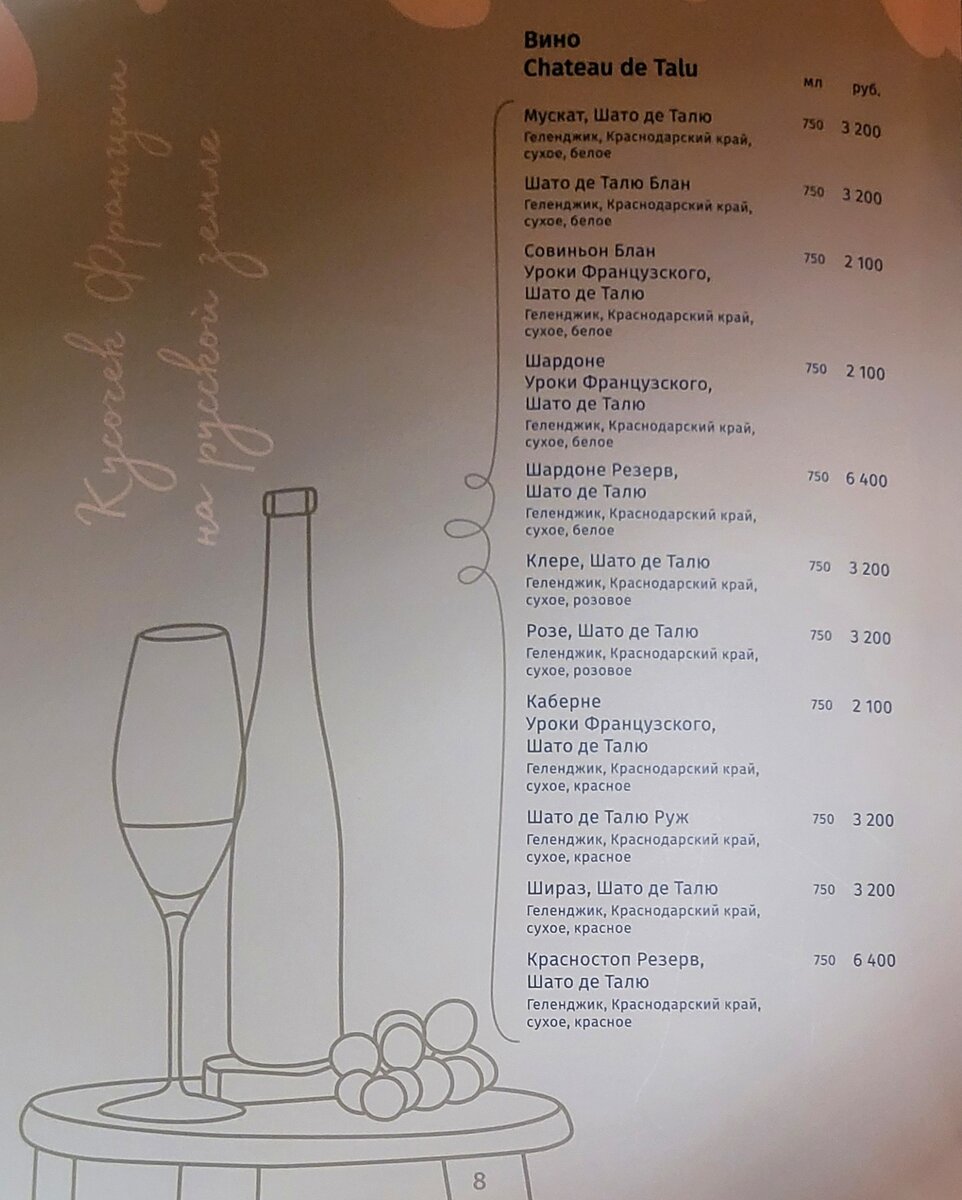 Кусочек Франции
на русской земле
Вино
Chateau de Talu
мл руб.
Мускат, Шато де Талю 750 3 200
Геленджик, Краснодарский край,
сухое, белое
Шато де Талю Блан 750 3 200
Геленджик, Краснодарский край,
сухое, белое
Совиньон Блан 750 2 100
Уроки Французского,
Шато де Талю
Геленджик, Краснодарский край,
сухое, белое
Шардоне 750 2 100
Уроки Французского,
Шато де Талю
Геленджик, Краснодарский край,
сухое, белое
Шардоне Резерв, 750 6 400
Шато де Талю
Геленджик, Краснодарский край,
сухое, белое
Клере, Шато де Талю 750 3 200
Геленджик, Краснодарский край,
сухое, розовое
Розе, Шато де Талю 750 3 200
Геленджик, Краснодарский край,
сухое, розовое
Каберне 750 2 100
Уроки Французского,
Шато де Талю
Геленджик, Краснодарский край,
сухое, красное
Шато де Талю Руж 750 3 200
Геленджик, Краснодарский край,
сухое, красное
Шираз, Шато де Талю 750 3 200
Геленджик, Краснодарский край,
сухое, красное
Красностоп Резерв, 750 6 400
Шато де Талю
Геленджик, Краснодарский край,
сухое, красное
8